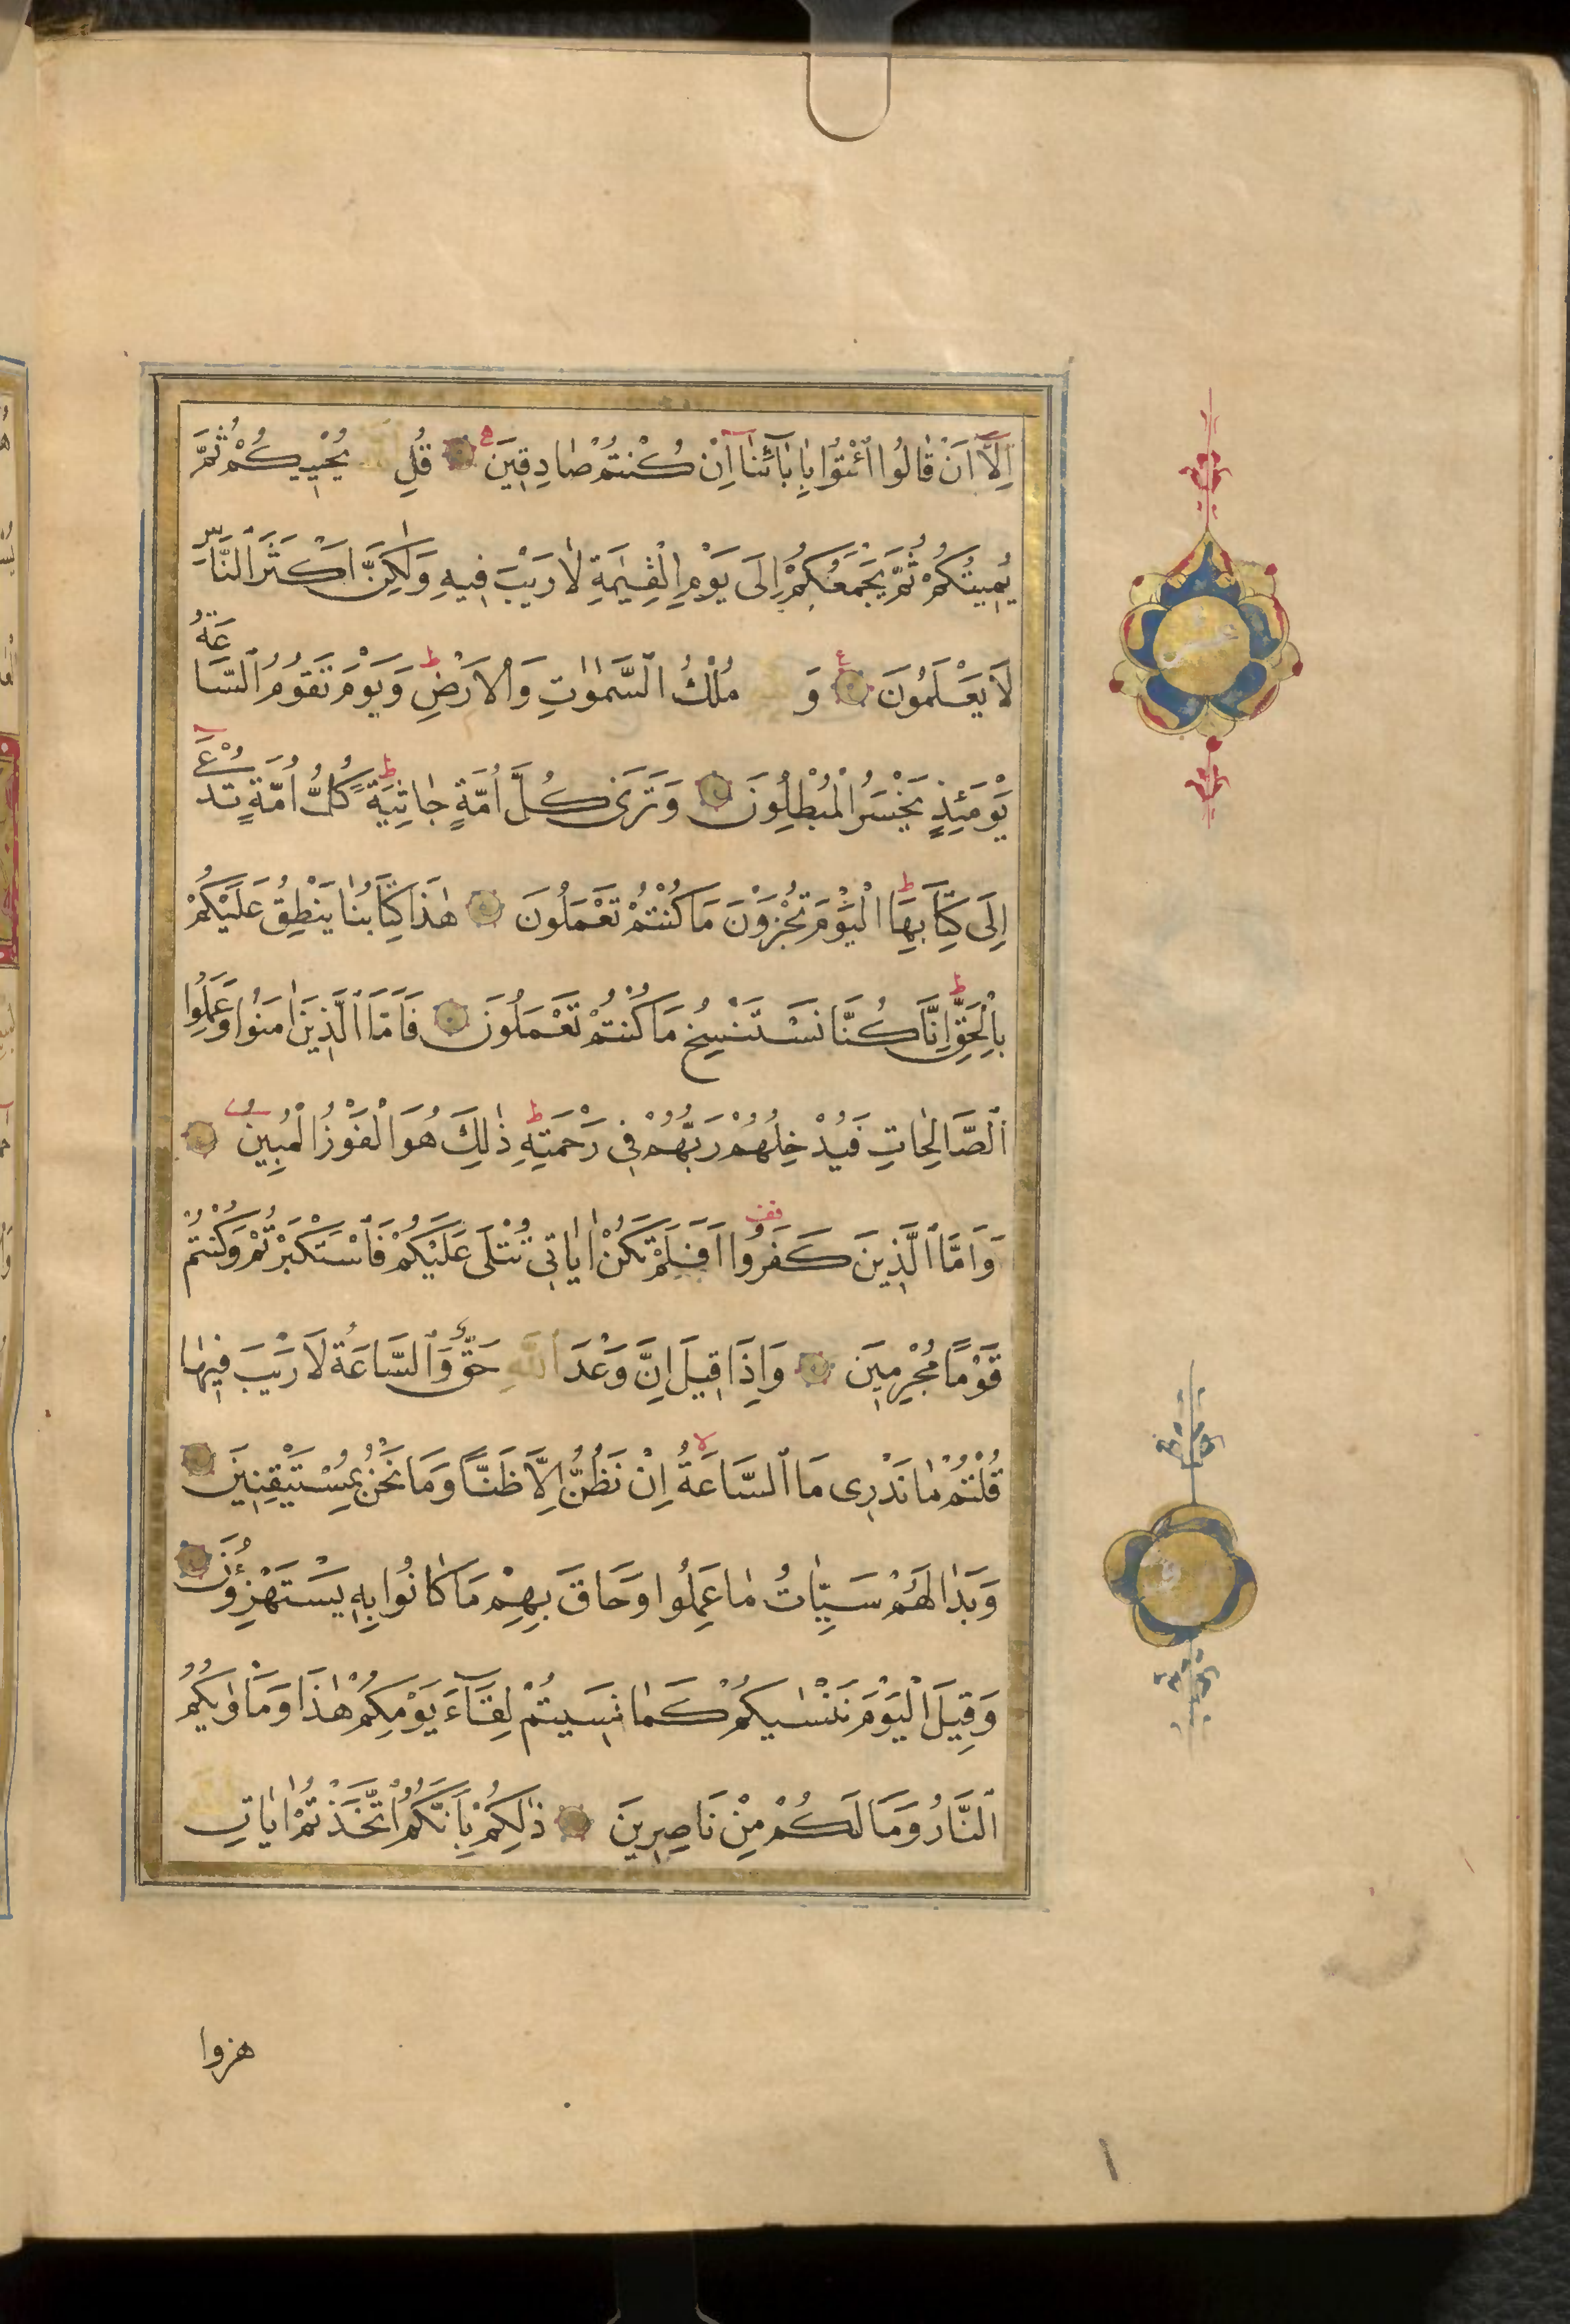 اِلَّآ اَنْ قَالُوا ٱئْتُوا بِاٰبَآئِنَآ اِنْ كُنْتُمْ صَادِقِينَ قُلِ اللّٰهُ يُحْيِيكُمْ ثُمَّ
يُمِيتُكُمْ ثُمَّ يَجْمَعُكُمْ اِلَى يَوْمِ الْقِيٰمَةِ لَا رَيْبَ فِيهِ وَلٰكِنَّ اَكْثَرَ النَّاسِ
لَا يَعْلَمُونَ وَلِلّٰهِ مُلْكُ ٱلسَّمٰوٰتِ وَالْاَرْضِ وَيَوْمَ تَقُومُ ٱلسَّاعَةُ
يَوْمَئِذٍ يَخْسَرُ الْمُبْطِلُونَ وَتَرَى كُلَّ اُمَّةٍ جَاثِيَةً كُلُّ اُمَّةٍ تُدْعَى
اِلَى كِتَابِهَا الْيَوْمَ تُجْزَوْنَ مَا كُنْتُمْ تَعْمَلُونَ هٰذَا كِتَابُنَا يَنْطِقُ عَلَيْكُمْ
بِالْحَقِّ اِنَّا كُنَّا نَسْتَنْسِخُ مَا كُنْتُمْ تَعْمَلُونَ فَاَمَّا ٱلَّذِينَ اٰمَنُوا وَعَمِلُوا
ٱلصَّالِحَاتِ فَيُدْخِلُهُمْ رَبُّهُمْ فِي رَحْمَتِهِ ذٰلِكَ هُوَ الْفَوْزُ الْمُبِينُ
وَاَمَّا ٱلَّذِينَ كَفَرُوا اَفَلَمْ تَكُنْ اٰيَاتِي تُتْلَى عَلَيْكُمْ فَاسْتَكْبَرْتُمْ وَكُنْتُمْ
قَوْمًا مُجْرِمِينَ وَاِذَا قِيلَ اِنَّ وَعْدَ ٱللّٰهِ حَقٌّ وَٱلسَّاعَةُ لَا رَيْبَ فِيهَا
قُلْتُمْ مَا نَدْرِي مَا ٱلسَّاعَةُ اِنْ نَظُنُّ اِلَّا ظَنًّا وَمَا نَحْنُ بِمُسْتَيْقِنِينَ
وَبَدَا لَهُمْ سَيِّاٰتُ مَا عَمِلُوا وَحَاقَ بِهِمْ مَا كَانُوا بِهِ يَسْتَهْزِؤُنَ
وَقِيلَ الْيَوْمَ نَنْسٰيكُمْ كَمَا نَسِيتُمْ لِقَآءَ يَوْمِكُمْ هٰذَا وَمَأْوٰيكُمُ
ٱلنَّارُ وَمَا لَكُمْ مِنْ نَاصِرِينَ ذٰلِكُمْ بِاَنَّكُمُ اتَّخَذْتُمْ اٰيَاتِ اللّٰهِ
هزوا